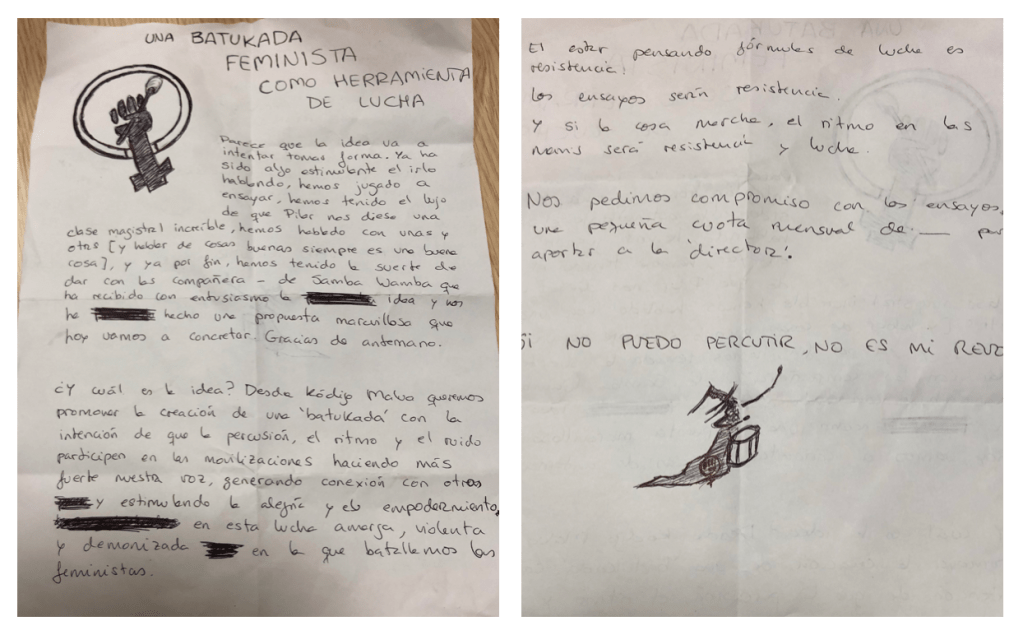 UNA BATUKADA
FEMINISTA
COMO HERRAMIENTA
DE LUCHA
Parece que la idea va a
intentar tomar forma. Ya ha
sido algo estimulante el irlo
hablando, hemos jugado a
ensayar, hemos tenido el lujo
de que Pilar nos diese una
clase magistral increíble, hemos hablado con unas y
otras [y hablar de cosas buenas siempre es una buena
cosa], y ya por fin, hemos tenido la suerte de
dar con las compañera - de Samba Wamba que
ha recibido con entusiasmo la idea y nos
ha hecho una propuesta maravillosa que
hoy vamos a concretar. Gracias de antemano.
¿Y cuál es la idea? Desde Kódigo Malva queremos
promover la creación de una 'batukada' con la
intención de que la percusión, el ritmo y el ruido
participen en las movilizaciones haciendo más
fuerte nuestra voz, generando conexión con otras
y estimulando la alegría y el empoderamiento,
en esta lucha amarga, violenta
y demonizada en la que batallamos las
feministas.
El estar pensando fórmulas de lucha es
resistencia.
Los ensayos serán resistencia.
Y si la cosa marcha, el ritmo en las
manis será resistencia y lucha.
Nos pedimos compromiso con los ensayos,
una pequeña cuota mensual de — para
aportar a la 'director'.
SI NO PUEDO PERCUTIR, NO ES MI REVO